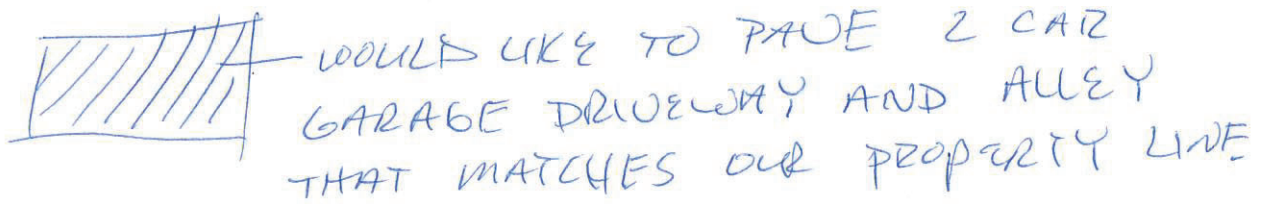 WOULD LIKE TO PAVE 2 CAR
GARAGE DRIVEWAY AND ALLEY
THAT MATCHES OUR PROPERTY LINE